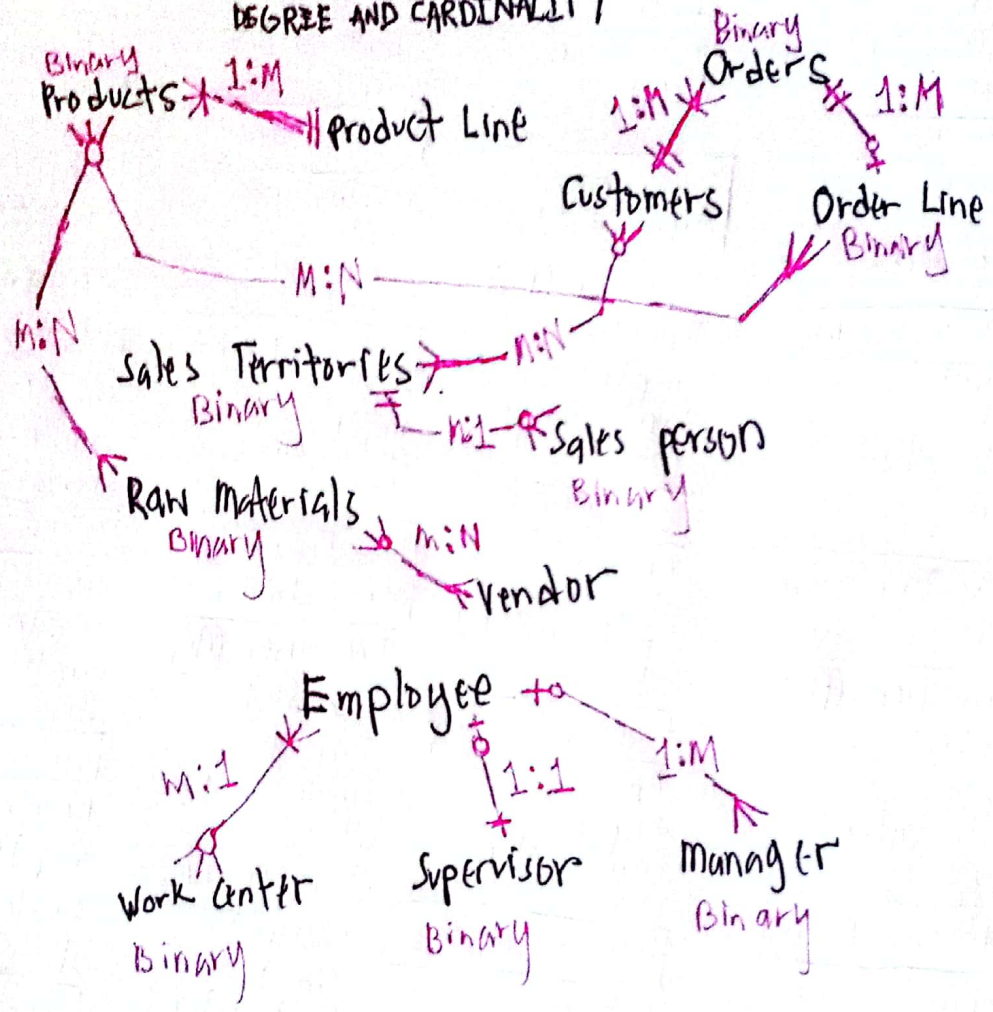 DEGREE AND CARDINALITY
Binary
Products
1:M
Product Line
Binary
Orders
1:M
1:M
Customers
Order Line
Binary
M:N
M:N
Sales Territories
Binary
M:N
n:1
Sales person
Binary
Raw Materials
Binary
M:N
Vendor
Employee
M:1
1:1
1:M
Work Center
Binary
Supervisor
Binary
Manager
Binary